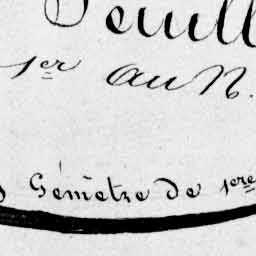 Feuill
1er au N.
Géomètre de 1ere